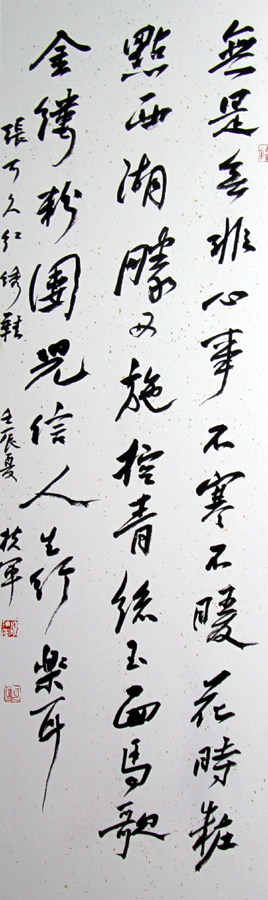 無是無非心事不寒不暖花時粧
點西湖西施控青絲玉面馬歌
金縷粉團兒信人生行樂耳
張可久红绣鞋 壬辰夏 軍